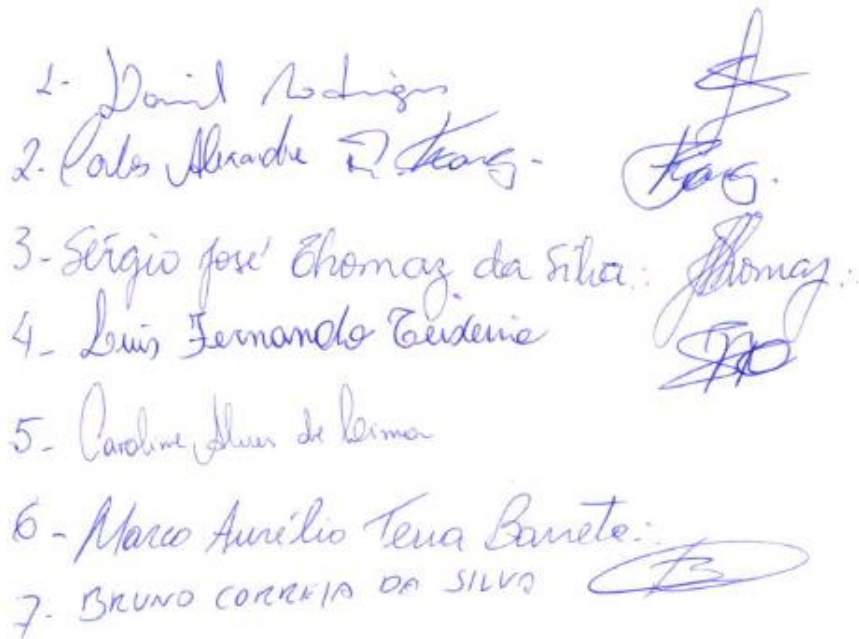 1- Daniel Rodrigues
2. Carlos Alexandre
3- Sérgio José Thomaz da Silva.: Thomaz.:
4- Luis Fernando Teixeira
5- Caroline Alves de Lima
6- Marco Aurélio Terra Barreto.:
7. BRUNO CORREIA DA SILVA